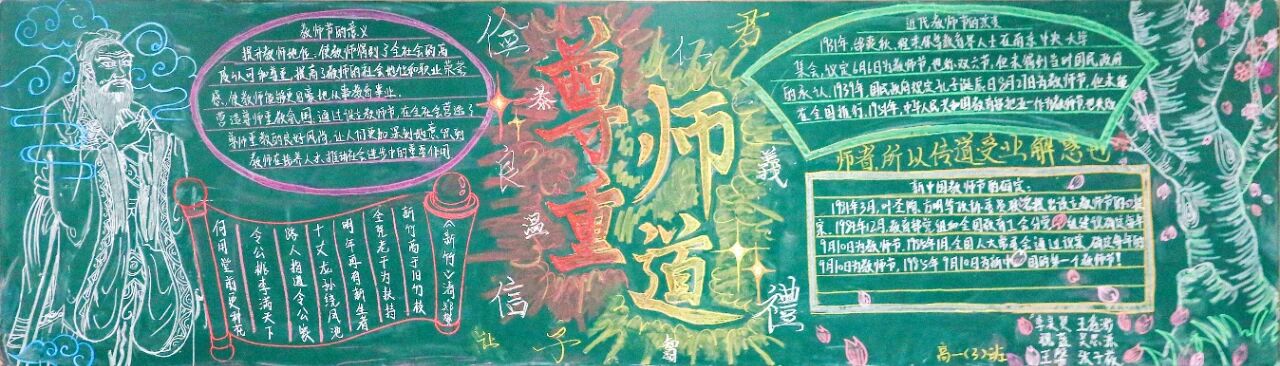 教师节的意义
提升教师地位、使教师得到了全社会的高
度认可和尊重,提高了教师的社会地位和职业荣誉
感,使教师能够更自豪地从事教育事业。
营造尊师重教氛围,通过设立教师节,在全社会营造了
尊师重教的良好风尚,让人们更加深刻地意识到
教师在培养人才、推动社会进步中的重要作用
《新竹》郑燮
新竹高于旧竹枝
全凭老干为扶持
明年再有新生者
十丈龙孙绕凤池
路人指道令公宅
令公桃李满天下
何用堂前更种花
俭
恭
良
温
信
让
尊重
师道
仁
君
義
禮
子
近代教师节的发展
1931年,
教育界人士在南京中央大学
集会,议定6月6日为教师节,也称双六节,但未得到当时国民政府
的承认。1939年国民政府规定孔子诞辰日8月27日为教师节,但未能
在全国推行,1951年,中华人民共和国教育部把五一作为教师节,
师者,所以传道受业解惑也
新中国教师节的确定:
1981年3月,叶圣陶,方明等政协委员
设立教师节的
定,1982年12月,教育部党组和全国教育工会分党组
建议确定每年
9月10日为教师节,1985年1月全国人大常委会通过议案,确定每年的
9月10日为教师节,1985年9月10日为新中国的第一个教师节!
高一(3)班